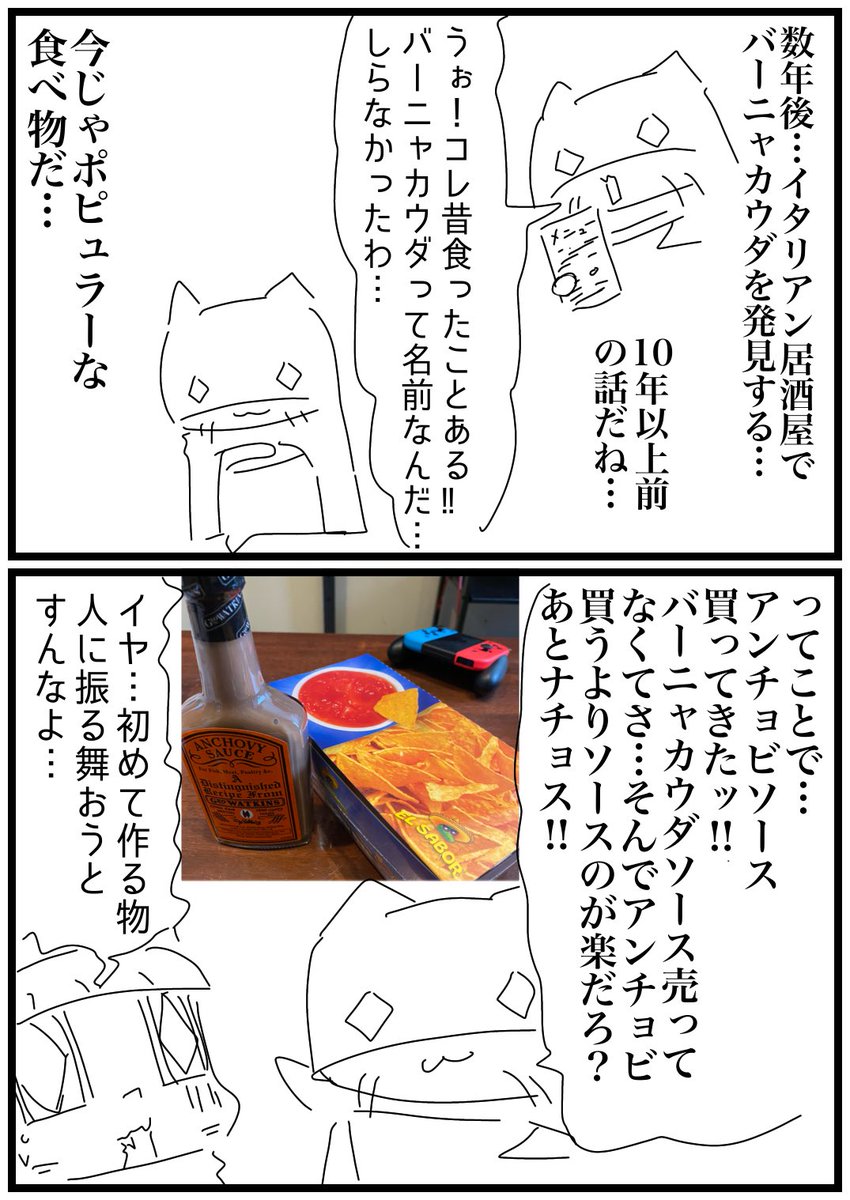 数年後…イタリアン居酒屋で
バーニャカウダを発見する…
メニュー
10年以上前
の話だね…
うぉ！コレ昔食ったことある!!
バーニャカウダって名前なんだ…
しらなかったわ…
今じゃポピュラーな
食べ物だ…
ってことで…
アンチョビソース
買ってきたッ!!
バーニャカウダソース売って
なくてさ…そんでアンチョビ
買うよりソースのが楽だろ？
あとナチョス!!
ANCHOVY
SAUCE
For Fish, Meat, Poultry &c.
A
Distinguished
Recipe From
GEO WATKINS
EL SABOR
イヤ…初めて作る物
人に振る舞おうと
すんなよ…